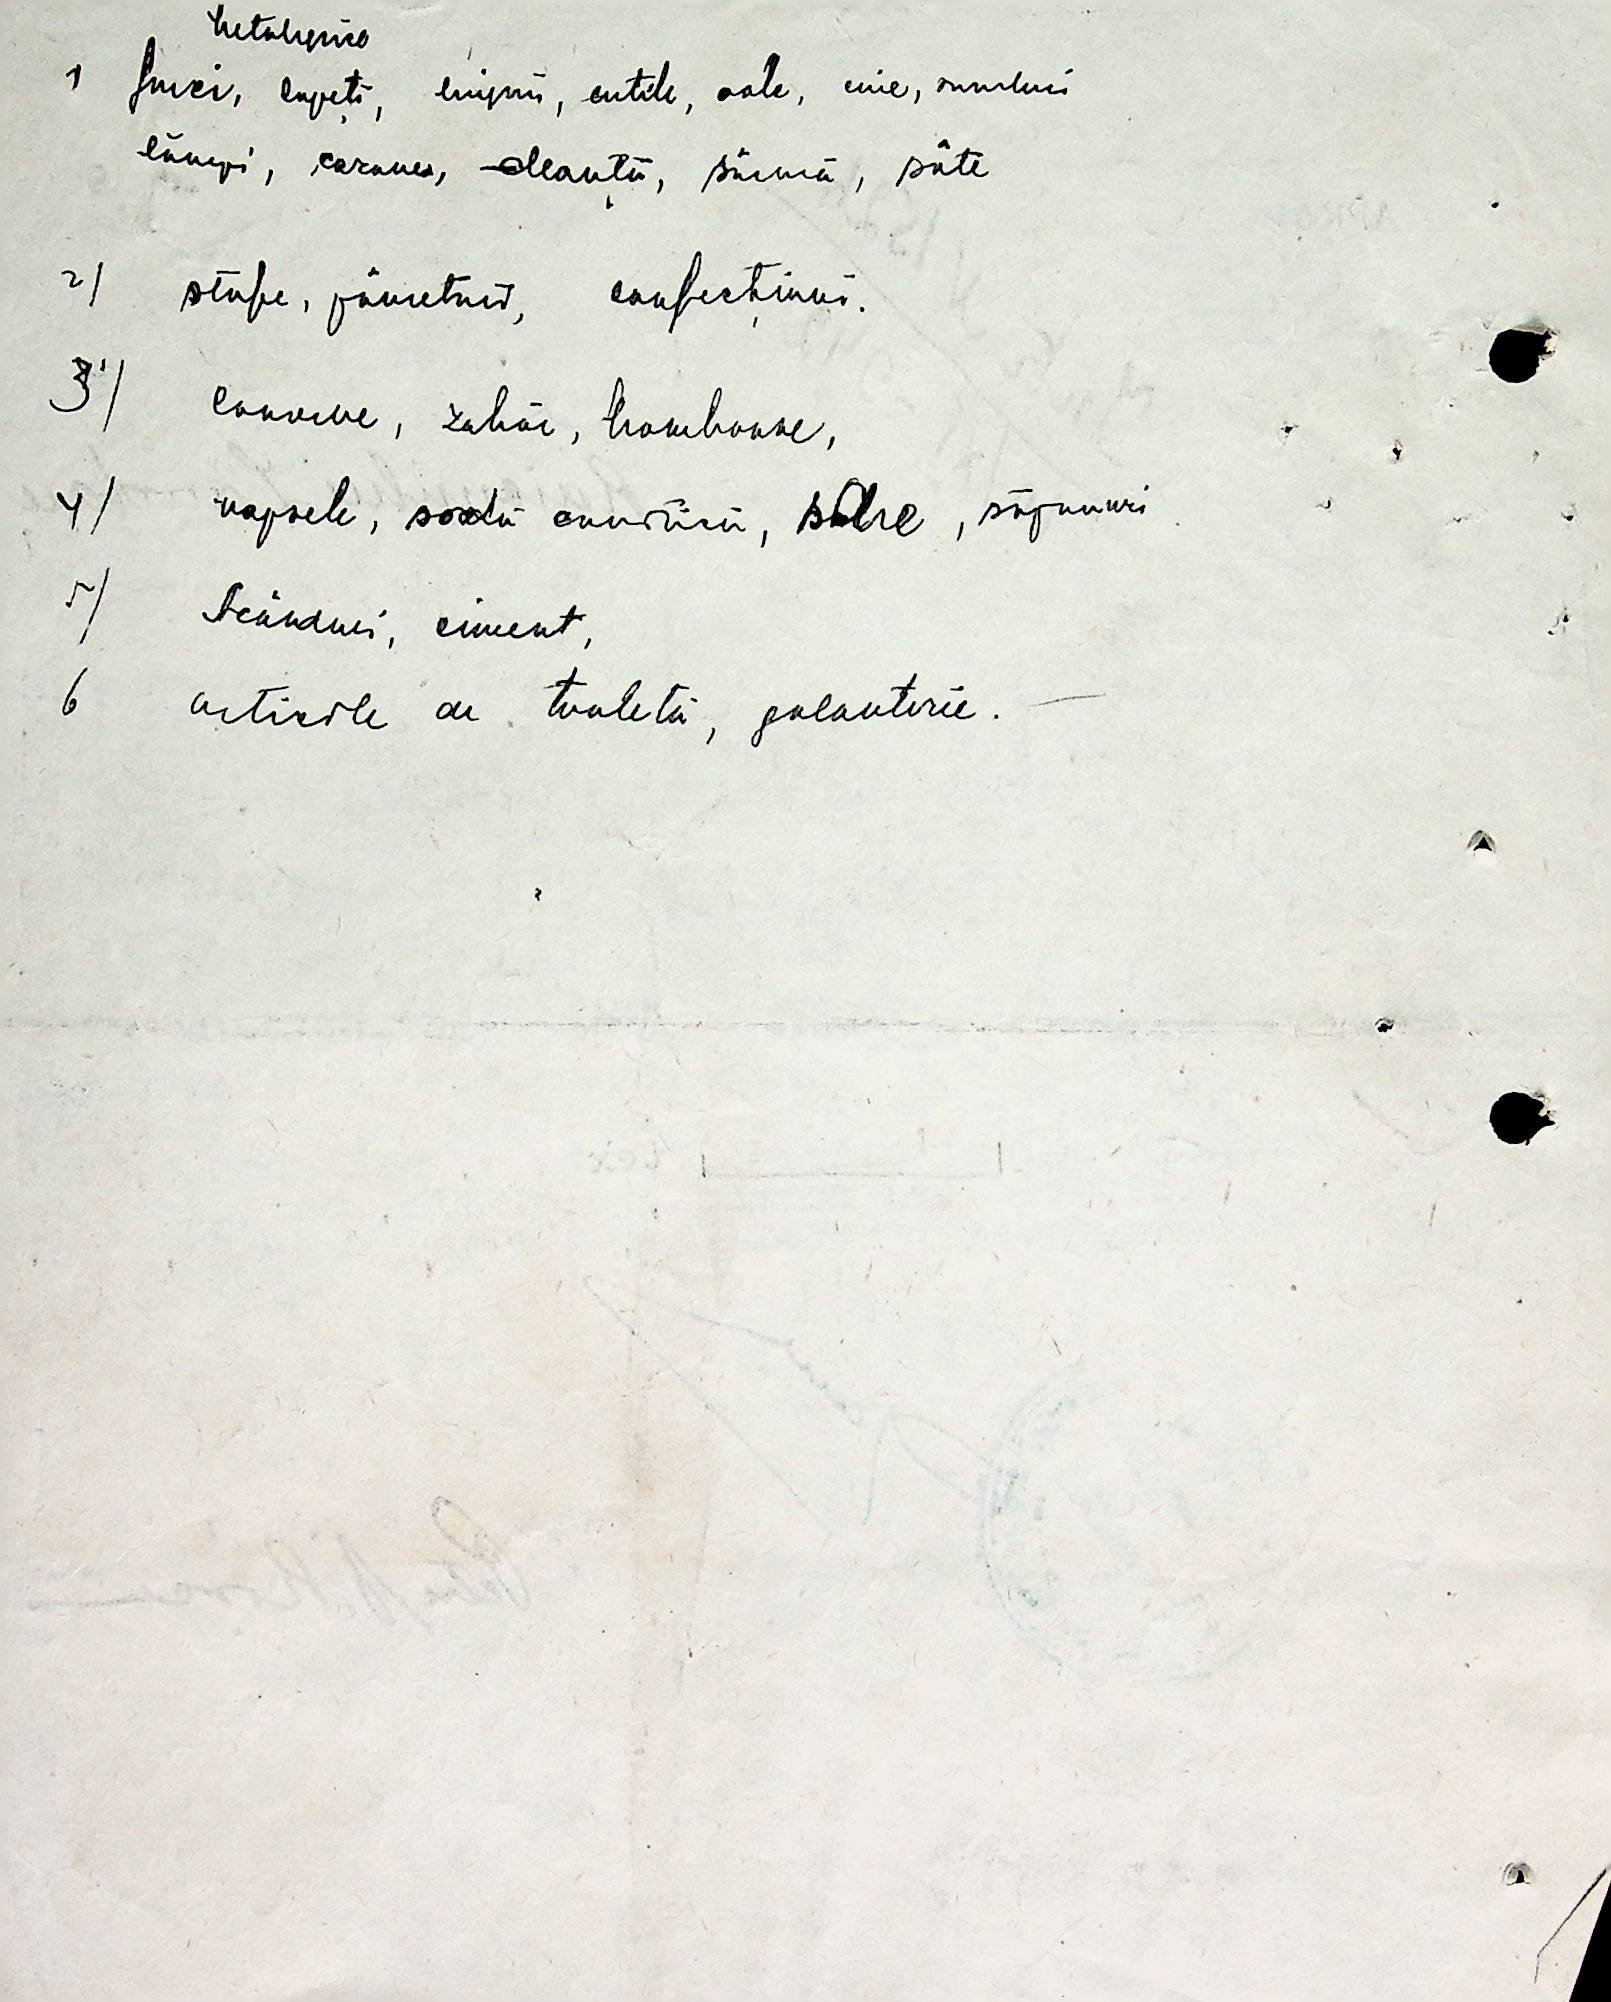 Metalurgica
1 furci, lopeți, linguri, cutite, oale, cuie, suruburi
lămpi, cazane, cleantă, sârmă, site
2/ stofe, pămeturi, confecțiuni.
3/ conserve, zahăr, bomboane,
4/ vopsele, sodă caustică, sare, săpunuri
5/ Scânduri, ciment,
6 articole de toaletă, galanterie. —